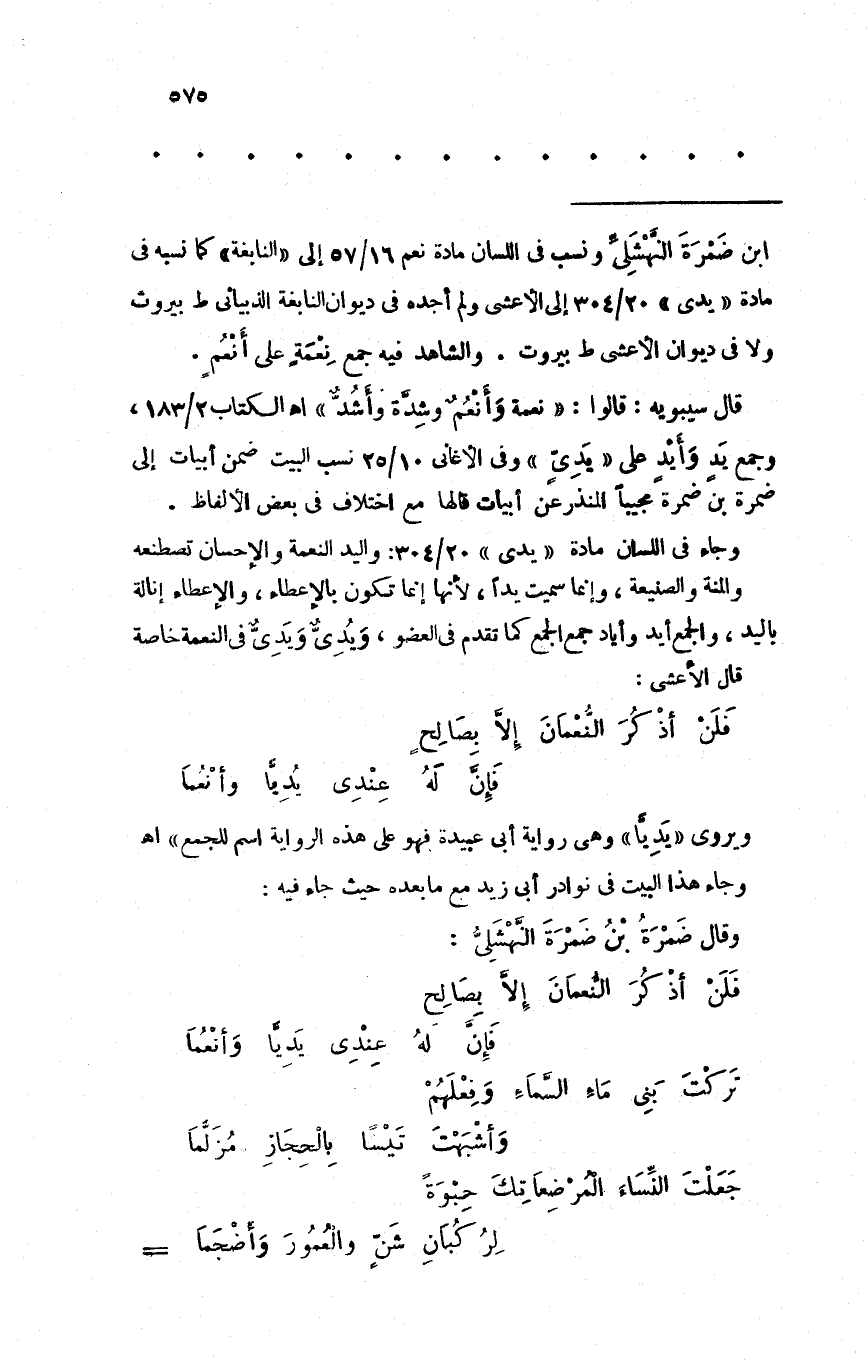 ٥٧٥
. . . . . . . . . . . . .
ابن ضَمْرَةَ النَّهْشَلِيِّ ونسب فى اللسان مادة نعم ٥٧/١٦ إلى «النابغة» كما نسبه فى
مادة « يدى » ٣٠٤/٢٠ إلى الأعشى ولم أجده فى ديوان النابغة الذبيانى ط بيروت
ولا فى ديوان الأعشى ط بيروت . والشاهد فيه جمع نِعْمَةٍ على أَنْعُمٍ .
قال سيبويه : قالوا : « نعمة وَأَنْعُمٌ وشِدَّة وأَشُدٌّ » اه الكتاب ١٨٣/٢ ،
وجمع يَدٍ وَأَيْدٍ على « يَدِىٍّ » وفى الأغانى ٢٥/١٠ نسب البيت ضمن أبيات إلى
ضمرة بن ضمرة مجيباً المنذر عن أبيات قالها مع اختلاف فى بعض الألفاظ .
وجاء فى اللسان مادة « يدى » ٣٠٤/٢٠: واليد النعمة والإحسان تصطنعه
والمنة والصنيعة ، وإنما سميت يداً ، لأنها إنما تكون بالإعطاء ، والإعطاء إنالة
باليد ، والجمع أيد وأياد جمع الجمع كما تقدم فى العضو ، وَيُدِىٌّ وَيَدِىٌّ فى النعمة خاصة
قال الأعشى :
فَلَنْ أذْكُرَ النُّعْمَانَ إِلاَّ بِصَالِحٍ
فَإِنَّ لَهُ عِنْدِى يُدِيًّا وأنْعُمَا
ويروى «يَدِيًّا» وهى رواية أبى عبيدة فهو على هذه الرواية اسم للجمع» اه
وجاء هذا البيت فى نوادر أبى زيد مع مابعده حيث جاء فيه :
وقال ضَمْرَةُ بْنُ ضَمْرَةَ النَّهْشَلِىُّ :
فَلَنْ أذْكُرَ النُّعمَانَ إِلاَّ بِصَالِحٍ
فَإِنَّ لهُ عِنْدِى يَدِيًّا وَأنْعُمَا
تَرَكْتَ بَنِى مَاءِ السَّمَاءِ وَفِعْلَهُمْ
وَأشْبَهْتَ تَيْسًا بِالْحِجَازِ مُزَلَّمَا
جَعَلْتَ النِّسَاءَ المُرْضِعَاتِكَ حِبْوَةً
لِرُكْبَانِ شَنٍّ والْعُمُورَ وَأَضْجَمَا =